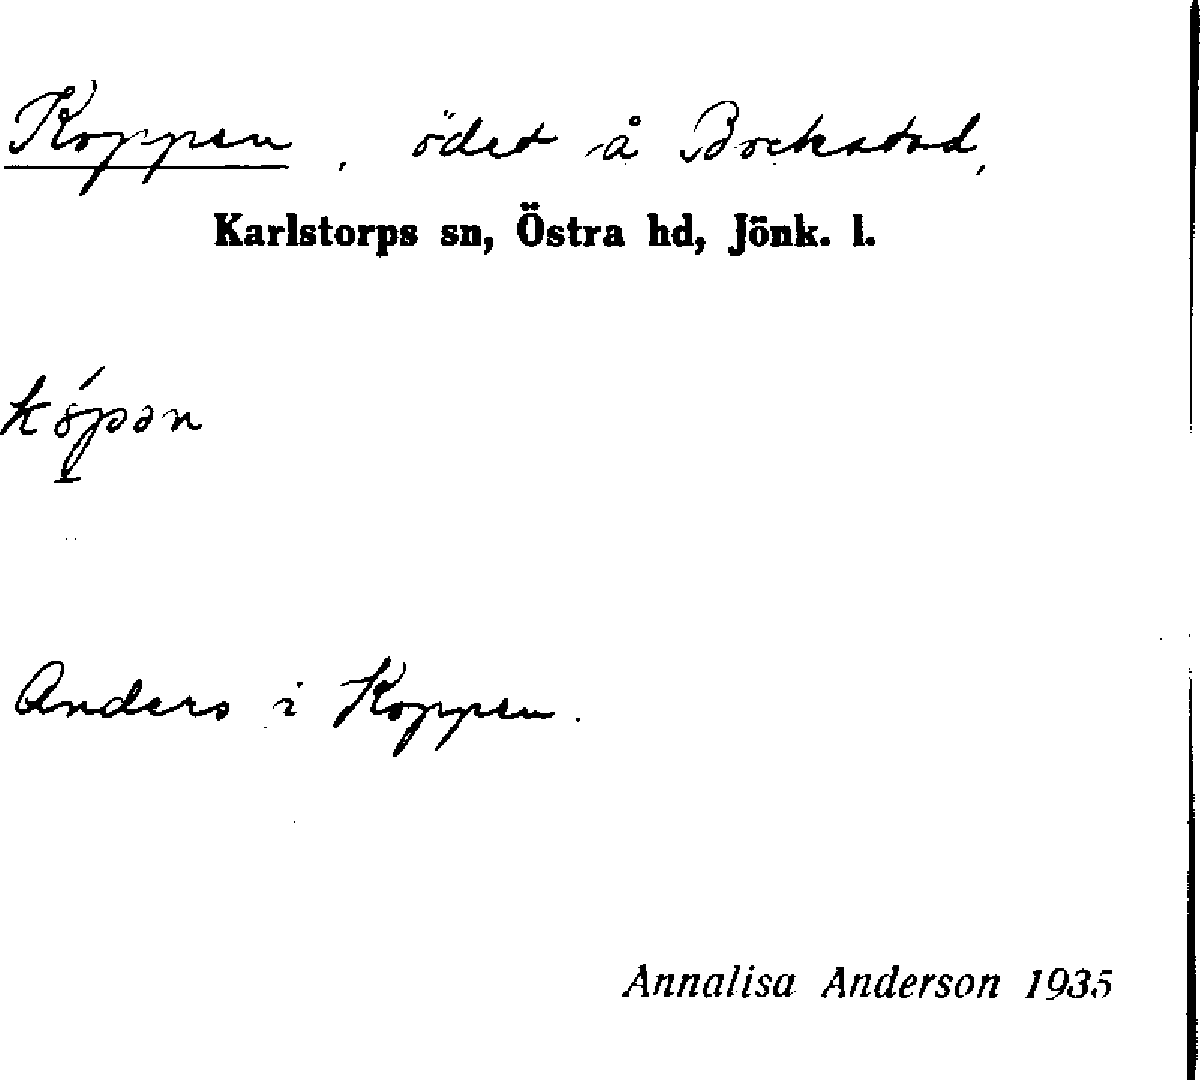 Koppen, ödet å Bockstad,
Karlstorps sn, Östra hd, Jönk. l.
Anders i Koppen.
Annalisa Anderson 1935